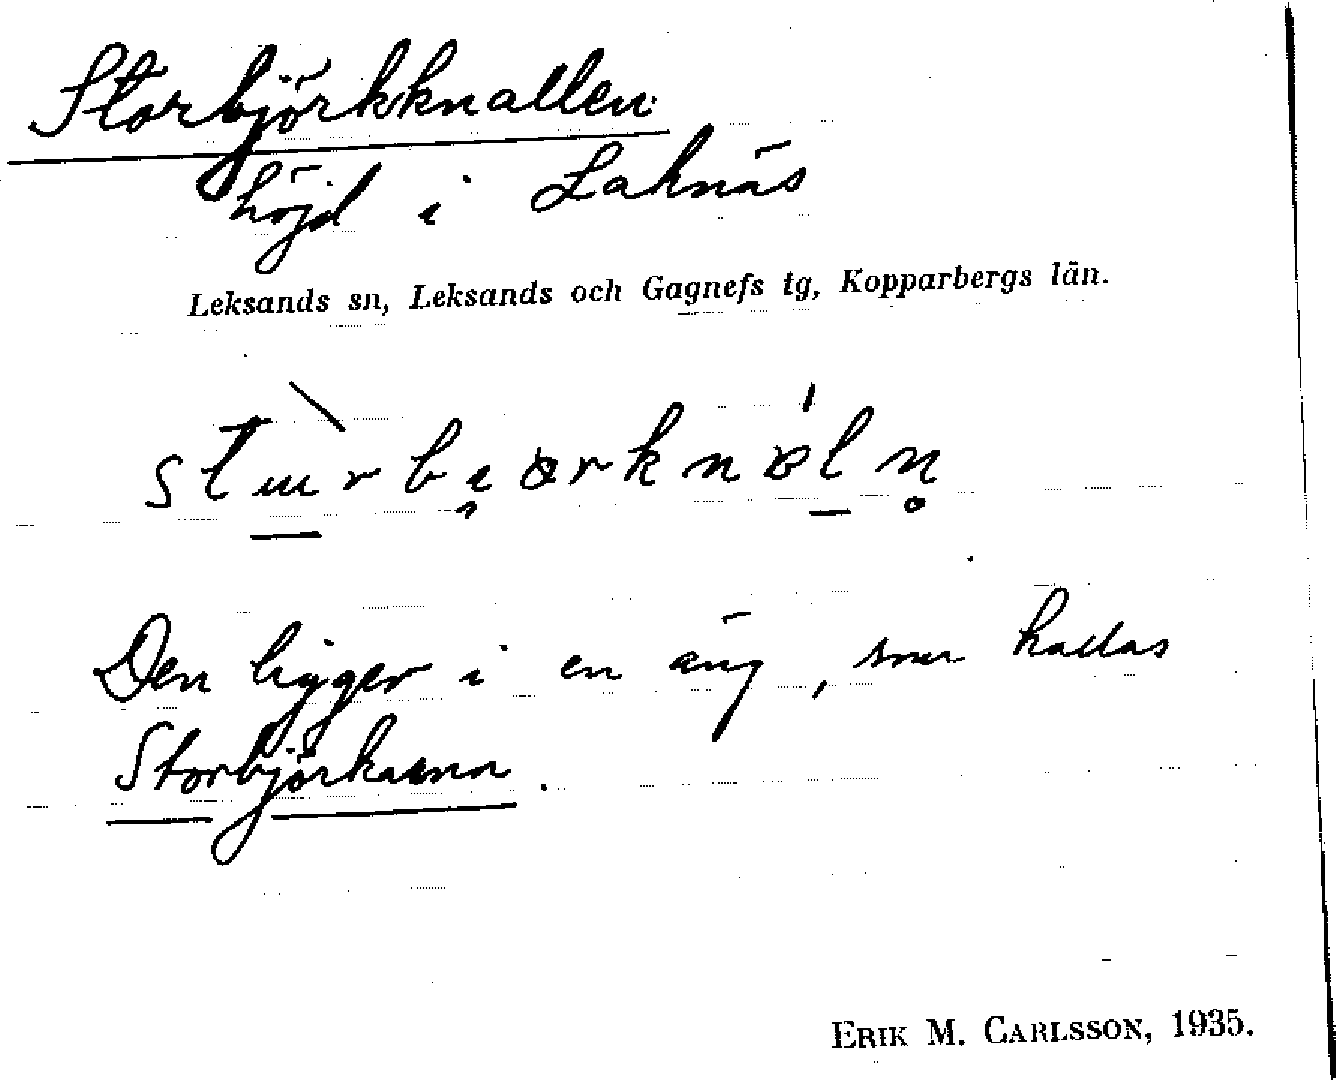 Storbjörkknallen
höjd i Laknäs
Leksands sn, Leksands och Gagnefs tg, Kopparbergs län.
Den ligger i en äng, som kallas
Storbjörkarna.
ERIK M. CARLSSON, 1935.